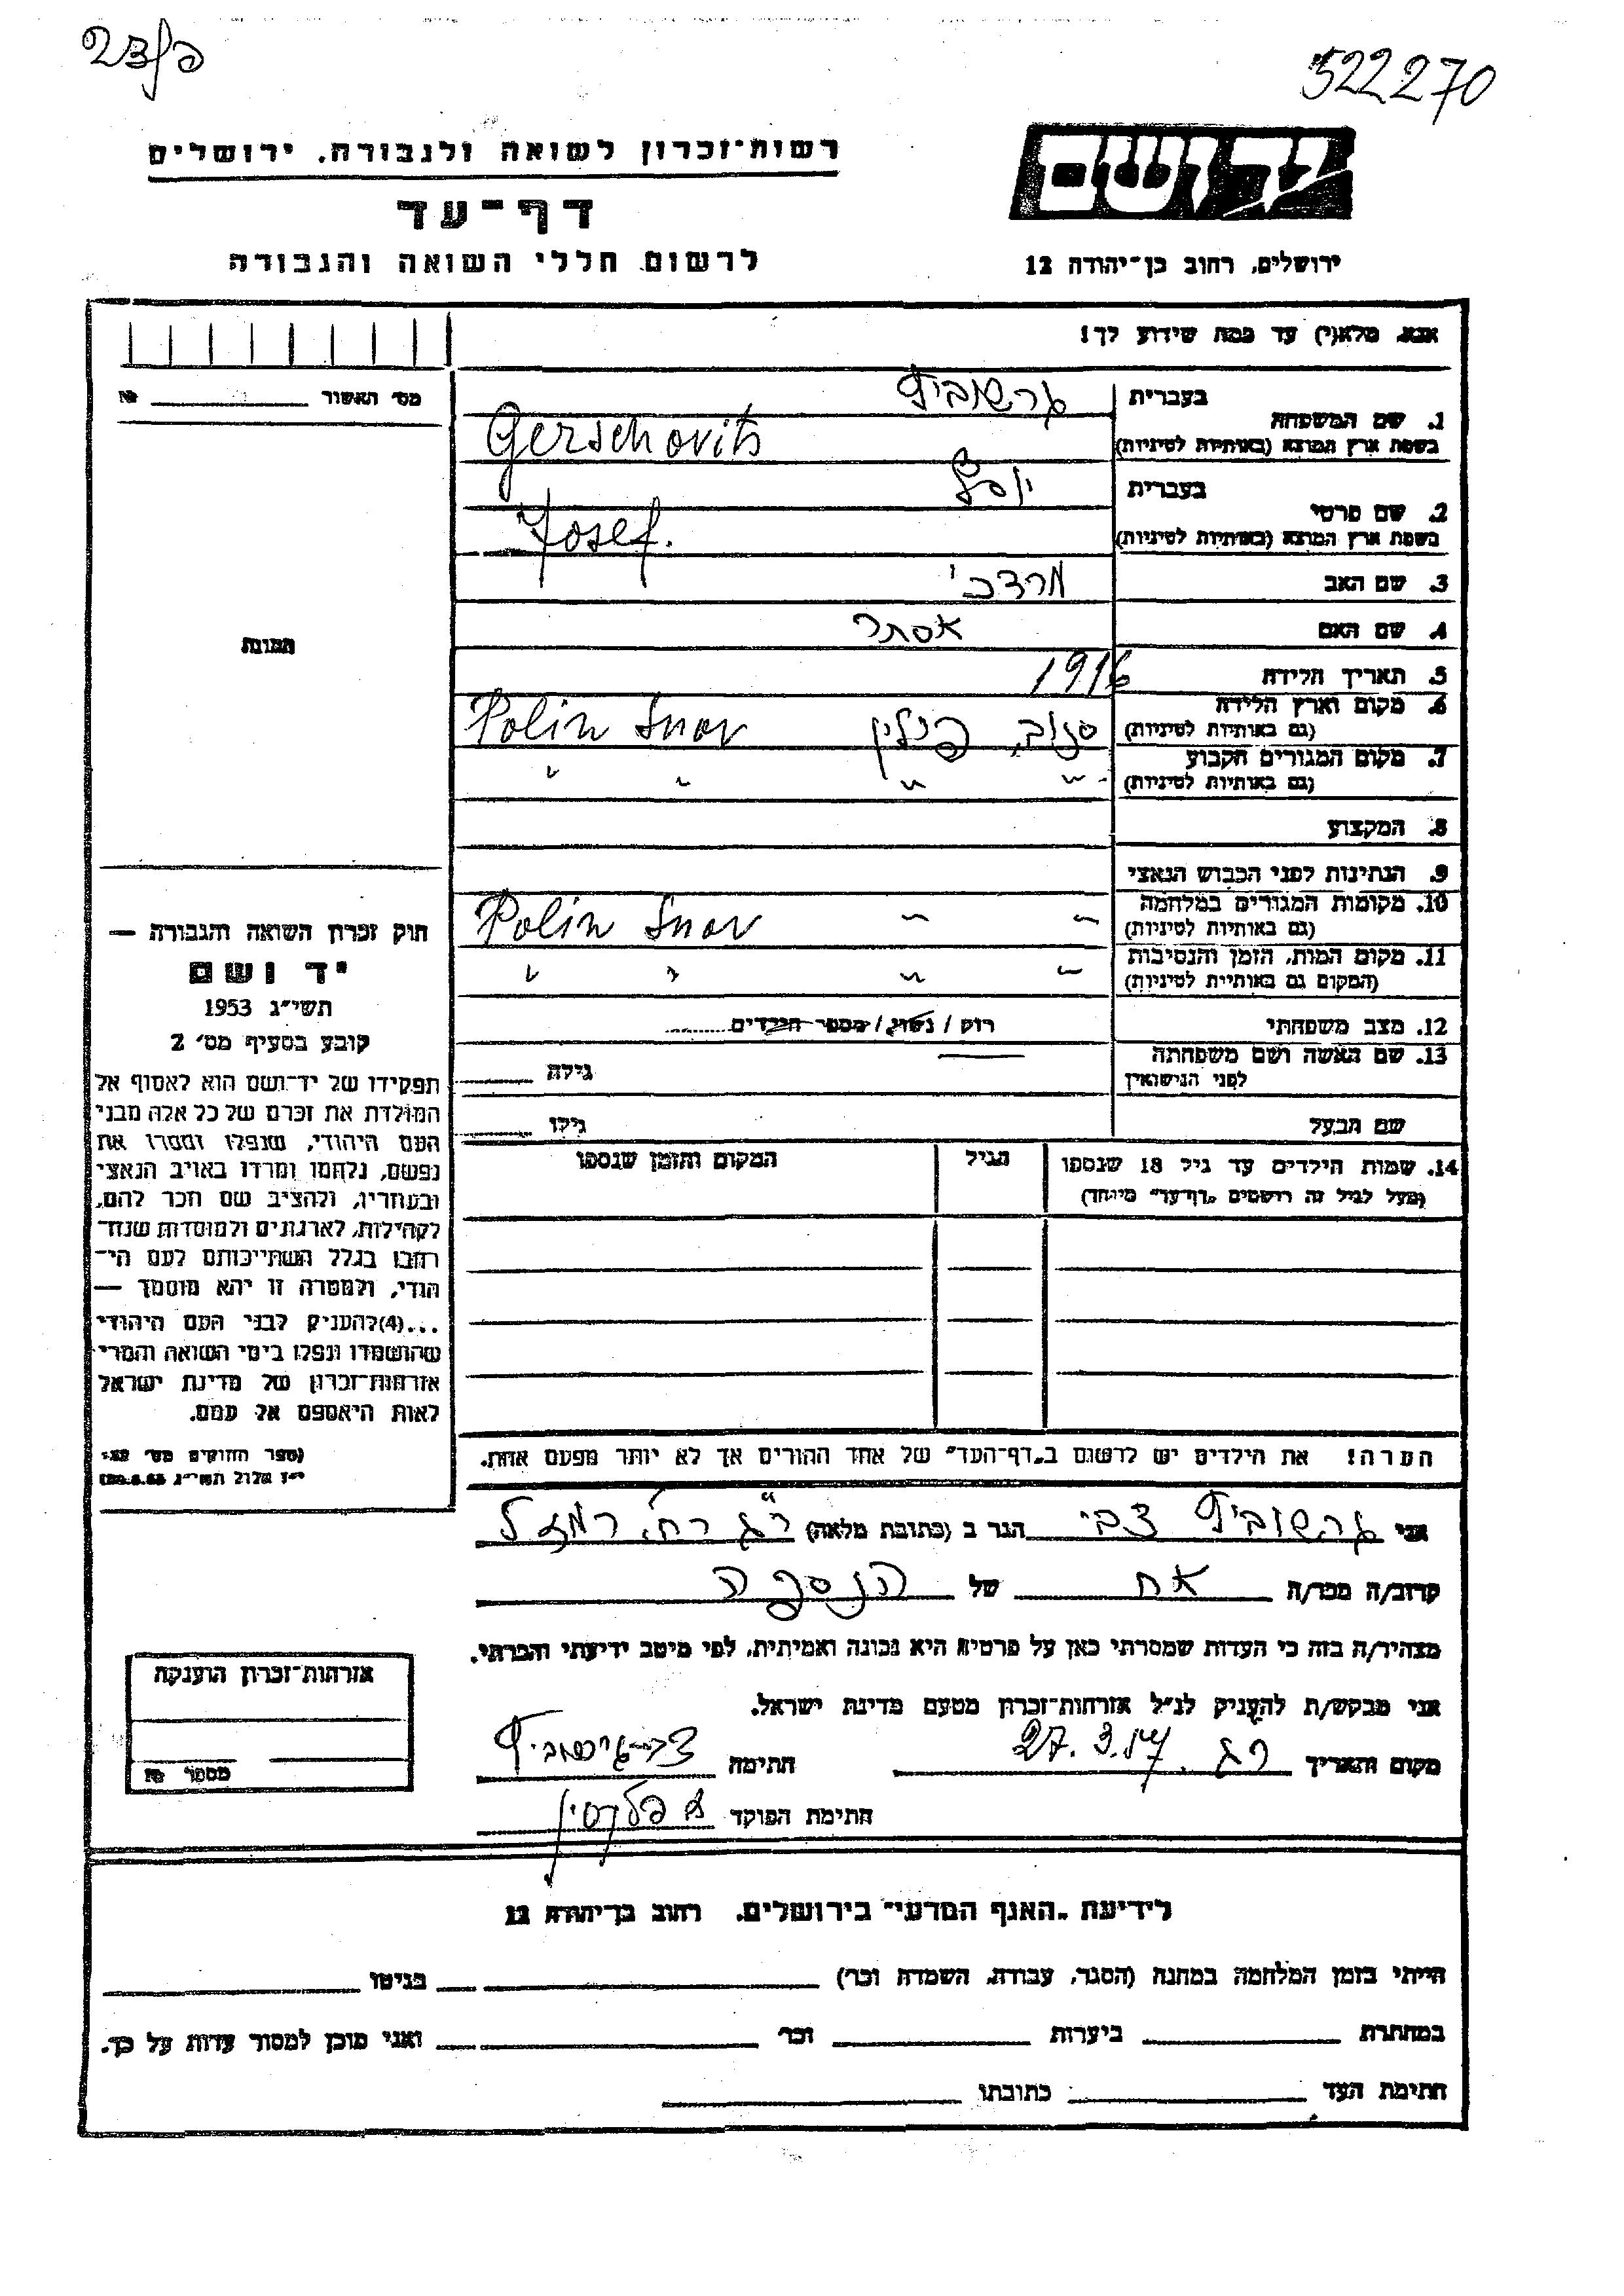 522270
רשות־זכרון לשואה ולגבורה, ירושלים
דף־עד
לרשום חללי השואה והגבורה
יד ושם
ירושלים, רחוב בן־יהודה 12
אנא, מלא(י) עד כמה שידוע לך!
מס׳ האשור № 
1. שם המשפחה
בעברית גרשוביץ
בשפת ארץ המוצא (באותיות לטיניות) Gerschovits
2. שם פרטי
בעברית יוסף
בשפת ארץ המוצא (באותיות לטיניות) Josef.
3. שם האב מרדכי
4. שם האם אסתר
5. תאריך הלידה 1916
6. מקום וארץ הלידה
(גם באותיות לטיניות) סנוב, פולין Polin Snov
7. מקום המגורים הקבוע
(גם באותיות לטיניות) " " " "
8. המקצוע
9. הנתינות לפני הכבוש הנאצי
10. מקומות המגורים במלחמה
(גם באותיות לטיניות) " " Polin Snov
11. מקום המות, הזמן והנסיבות
(המקום גם באותיות לטיניות) " " " "
12. מצב משפחתי רוק / נשוי / מספר הילדים
13. שם האשה ושם משפחתה
לפני הנישואין גילה
שם הבעל גילו
14. שמות הילדים עד גיל 18 שנספו
(מעל לגיל זה רושמים „דף־עד״ מיוחד)
הגיל
המקום והזמן שנספו
הערה! את הילדים יש לרשום ב„דף־העד״ של אחד ההורים אך לא יותר מפעם אחת.
התמונה
חוק זכרון השואה והגבורה —
יד ושם
תשי״ג 1953
קובע בסעיף מס׳ 2
תפקידו של יד־ושם הוא לאסוף אל
המולדת את זכרם של כל אלה מבני
העם היהודי, שנפלו ומסרו את
נפשם, נלחמו ומרדו באויב הנאצי
ובעוזריו, ולהציב שם וזכר להם,
לקהילות, לארגונים ולמוסדות שנח־
רחבו בגלל השתייכותם לעם הי־
הודי, ולמטרה זו יהא מוסמך —
...(4)להעניק לבני העם היהודי
שהושמדו ונפלו בימי השואה והמרי
אזרחות־זכרון של מדינת ישראל
לאות היאספם אל עמם.
(ספר החוקים מס׳
י״ז אלול תשי״ג
אני גרשוביץ צבי הגר ב (כתובת מלאה) ר״ג רח׳
קרוב/ה מכר/ה אח של הנספה
מצהיר/ה בזה כי העדות שמסרתי כאן על פרטיה היא נכונה ואמיתית, לפי מיטב ידיעתי והכרתי.
אני מבקש/ת להעניק לנ״ל אזרחות־זכרון מטעם מדינת ישראל.
מקום ותאריך ר״ג חתימה
חתימת הפוקד
אזרחות־זכרון הוענקה
מספר №
לידיעת „האגף המדעי״ בירושלים, רחוב בן־יהודה 12
הייתי בזמן המלחמה במחנה (הסגר, עבודה, השמדה וכו׳) בגיטו
במחתרת ביערות וכו׳ ואני מוכן למסור עדות על כך.
חתימת העד כתובתו